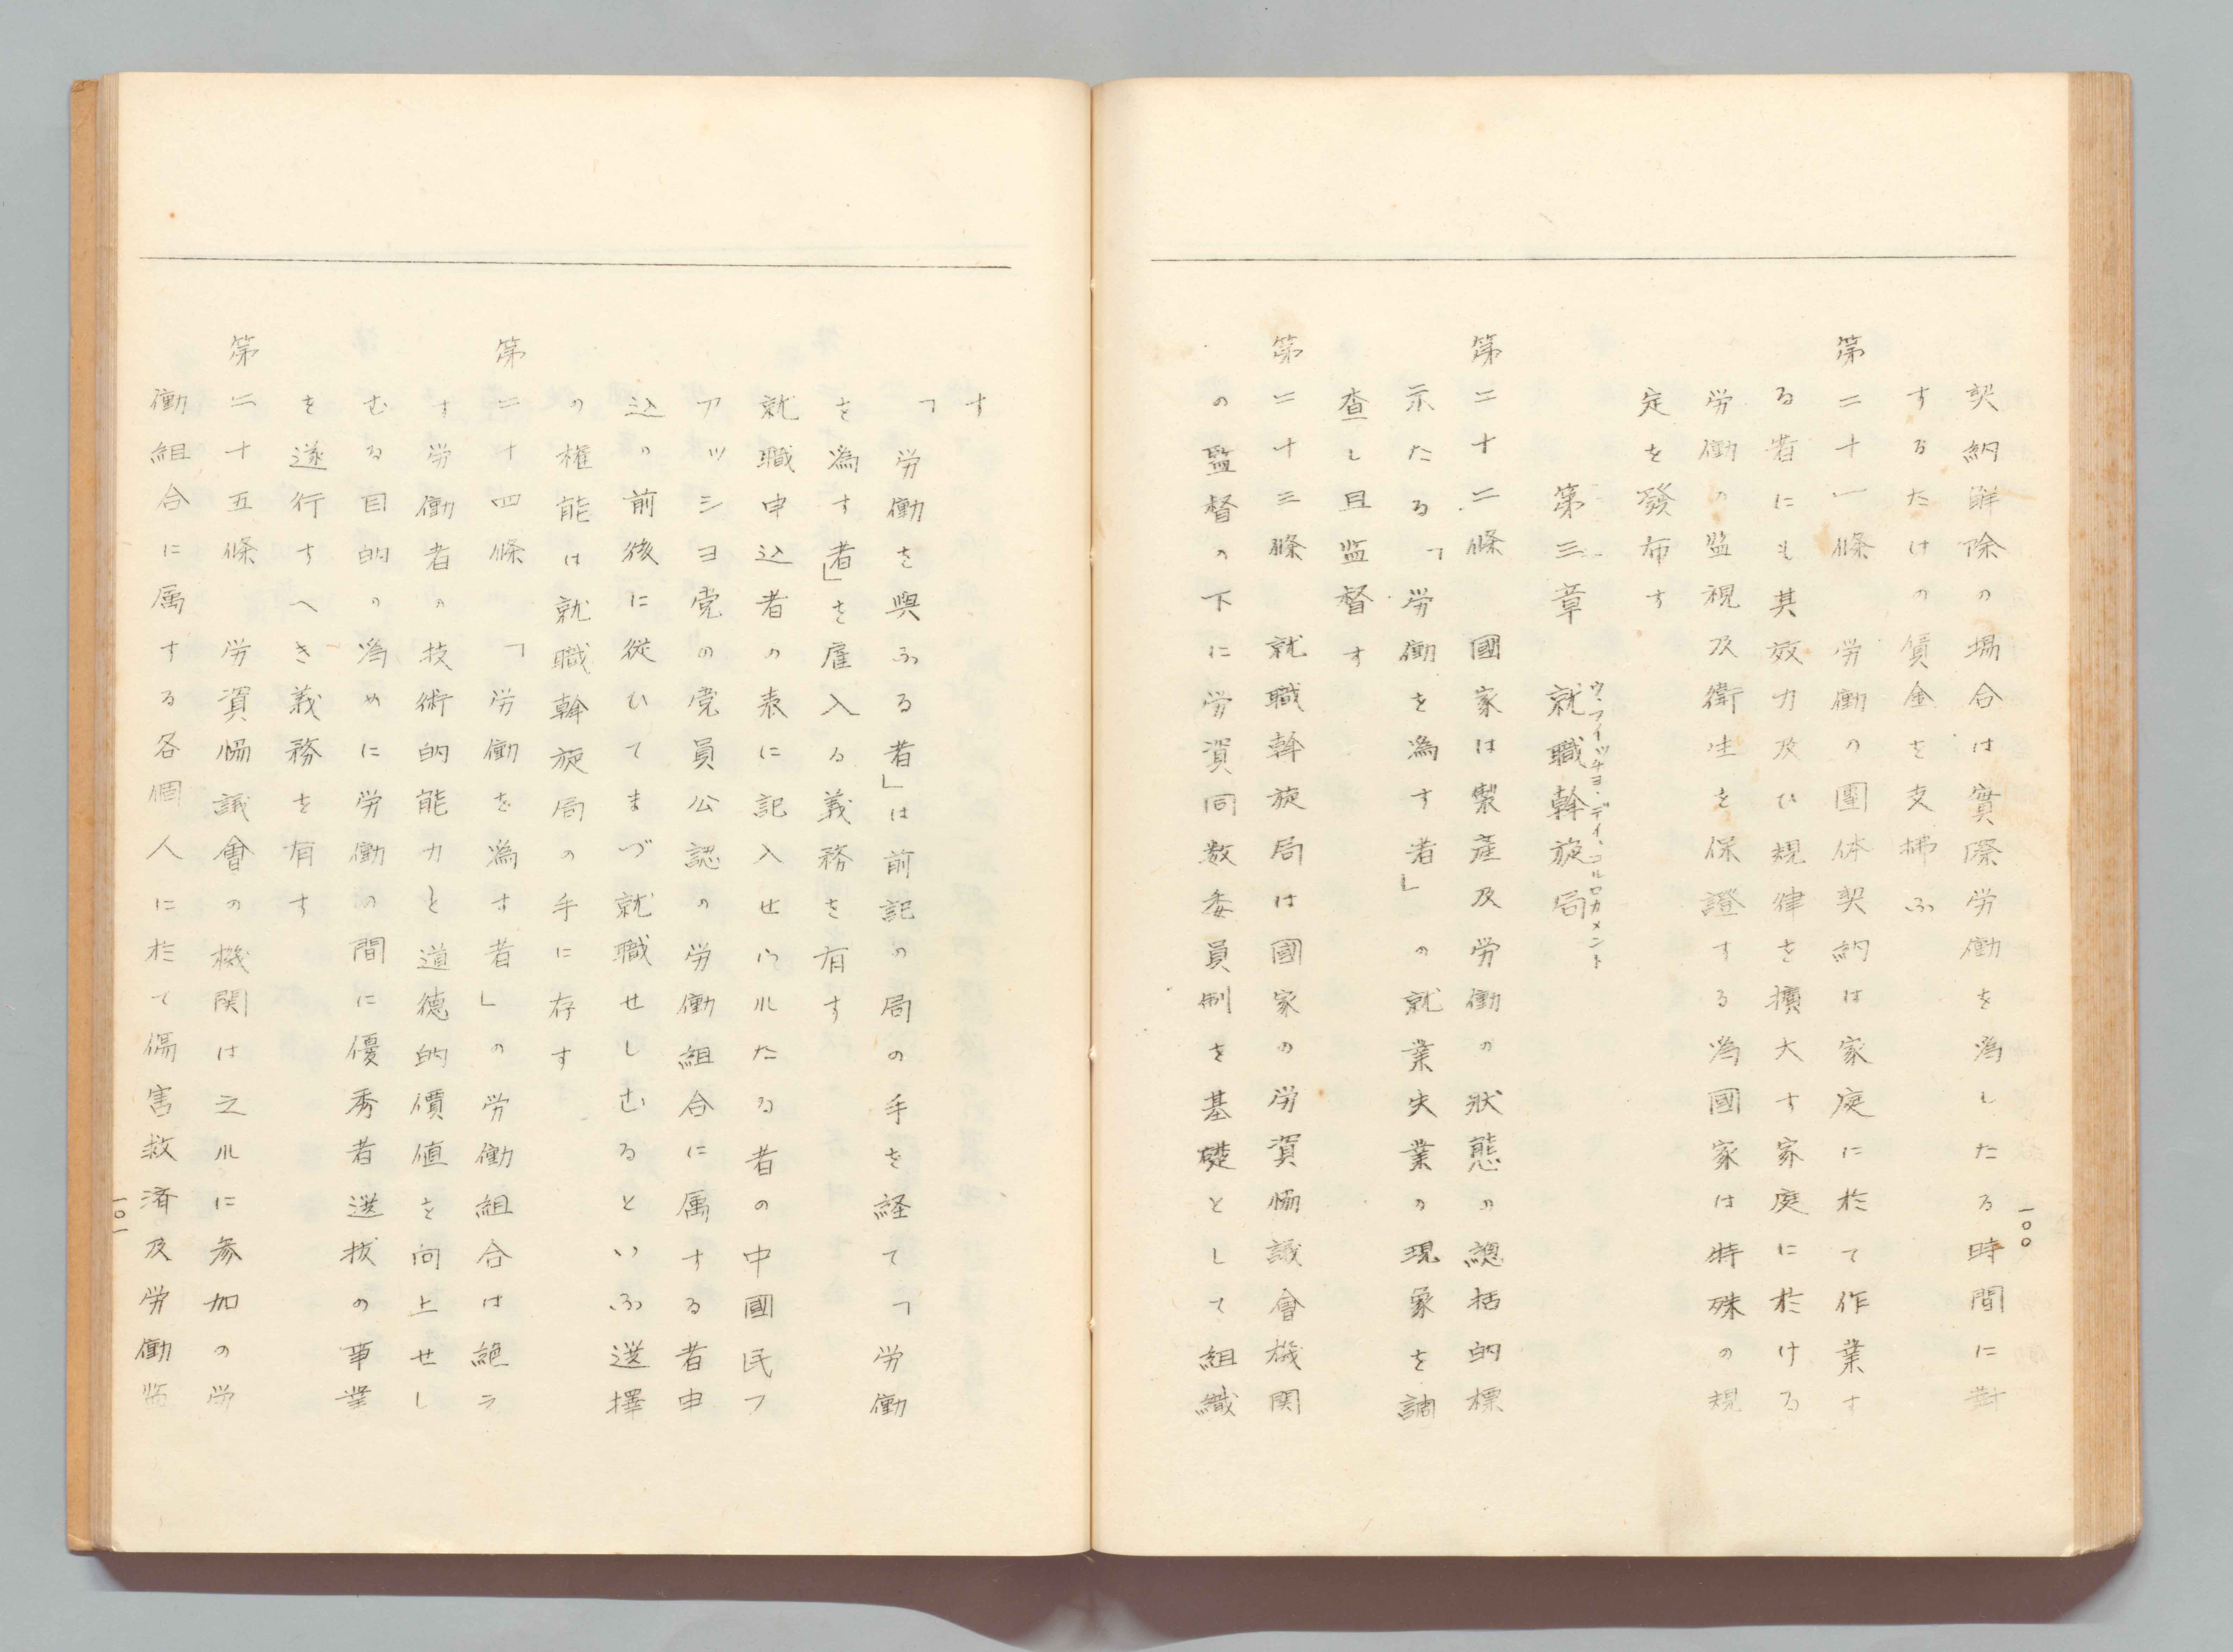 契約解除の場合は實際労働を為したる時間に對
するたけの賃金を支拂ふ
第二十一條 労働の團体契約は家庭に於て作業す
る者にも其效力及ひ規律を擴大す家庭に於ける
労働の監視及衛生を保證する為國家は特殊の規
定を發布す
第三章 就職斡旋局
ウ、フイツチヨ・デイ、コルロカメント
第二十二條 國家は製産及労働の狀態の總括的標
示たる「労働を為す者」の就業失業の現象を調
査し且监督す
第二十三條 就職斡旋局は國家の労資協議會機関
の監督の下に労資同数委員制を基礎として組織
一〇〇
す
「労働を與ふる者」は前記の局の手を経て「労働
を為す者」を雇入る義務を有す
就職申込者の表に記入せられたる者の中國民フ
アツシヨ党の党員公認の労働組合に属する者申
込の前後に従ひてまづ就職せしむるといふ選擇
の權能は就職斡旋局の手に存す
第二十四條 「労働を為す者」の労働組合は絶ラ
す労働者の技術的能力と道德的價値を向上せし
むる目的の為めに労働の間に優秀者选拔の事業
を遂行すへき義務を有す
第二十五條 労資協議會の機関は之ルに参加の労
働組合に属する各個人に於て傷害救済及労働监
一〇一